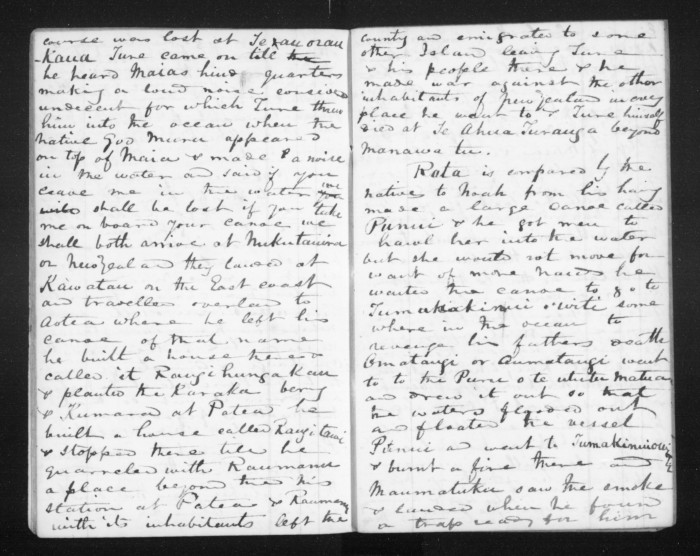 course was lost at Te
Kaua Ture came on till the
he heard Maias hind quarters
making a loud noise considered
undecent for which Ture threw
him into the ocean when the
native God Muru appeared
on top of Maia & made a noise
in the water and said if you
leave me in the water you
will shall be lost if you take
me on board your canoe we
shall both arrive at
or Newzealand they landed at
Kawatau on the East coast
and travelled overland to
Aotea where he left his
canoe of that name
he built a house here
called it Rangi hunga Kau
& planted the Karaka bery
& Kumara at Patea he
built a house called Rangitawi
& stopped there till he
quarreled with Raumanu
a place beyond the his
station at Patea & Raumanu
with its inhabitants left the
county and emigrated to some
other Island leaving Ture
& his people there & he
made war against the other
inhabitants of Newzealand in every
place he went to & Ture himself
died at Te Ahua Turanga beyond
Manawatu.
Rata is compared by the
native to Noah from his having
made a large canoe called
Puniu & he got men to
hawl her into the water
but she would not move for
want of more hands he
wanted the canoe to go to
some
where in the ocean to
revenge his fathers death
Omatangi or Aumatangi went
to to the Puna o te
and drew it out so that
the waters flooded out
and floated the vessel
Puniu and went to
& burnt a fire there and
Maumatuku saw the smoke
& landed when he found
a trap ready for him